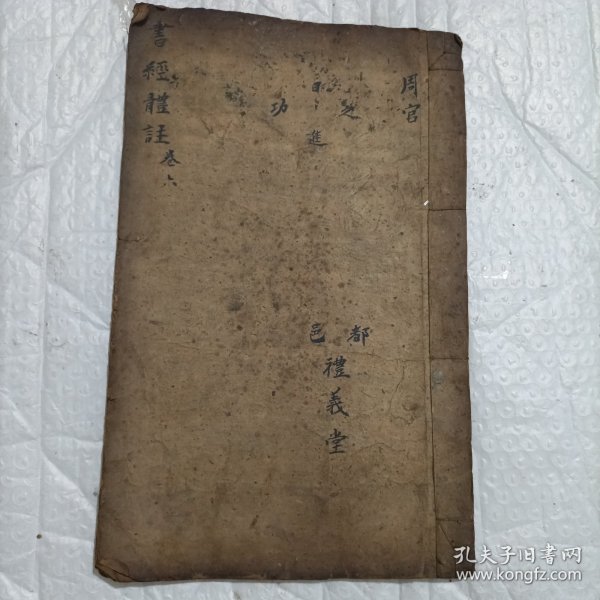 周官
之
日進
功
都邑
禮義堂
書經體註
卷六
孔夫子旧书网
www.kongfz.com